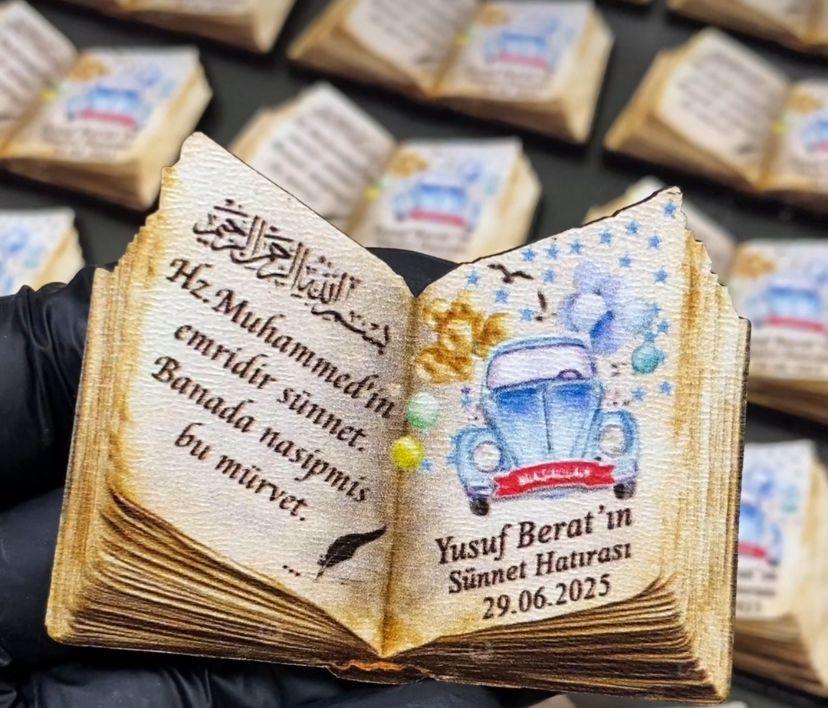 بسم الله الرحمن الرحيم
Hz.Muhammed'in
emridir sünnet.
Banada nasipmis
bu mürvet.
...
MAŞALLAH
Yusuf Berat'ın
Sünnet Hatırası
29.06.2025